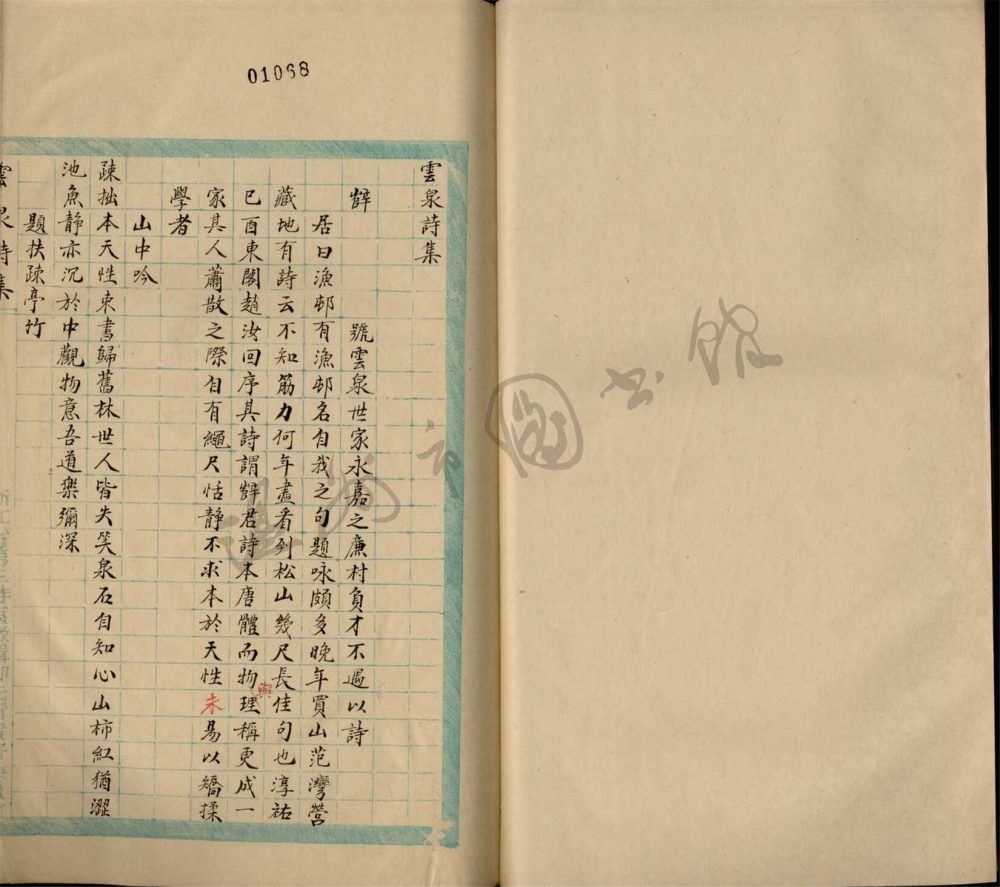 01068
雲泉詩集
薛　　號雲泉世家永嘉之廉村負才不遇以詩
居曰漁邨有漁邨名自我之句題咏頗多晚年買山范灣營
藏地有詩云不知筋力何年盡看到松山幾尺長佳句也淳祐
已酉東閣趙汝回序其詩謂薛君詩本唐體而物理稱更成一
與
家其人蕭散之際自有繩尺恬静不求本於天性未易以矯揉
學者
山中吟
疎拙本天性束書歸舊林世人皆失笑泉石自知心山柿紅猶澀
池魚静亦沉於中觀物意吾道樂彌深
題扶疎亭竹
雲泉詩集
市圖書館